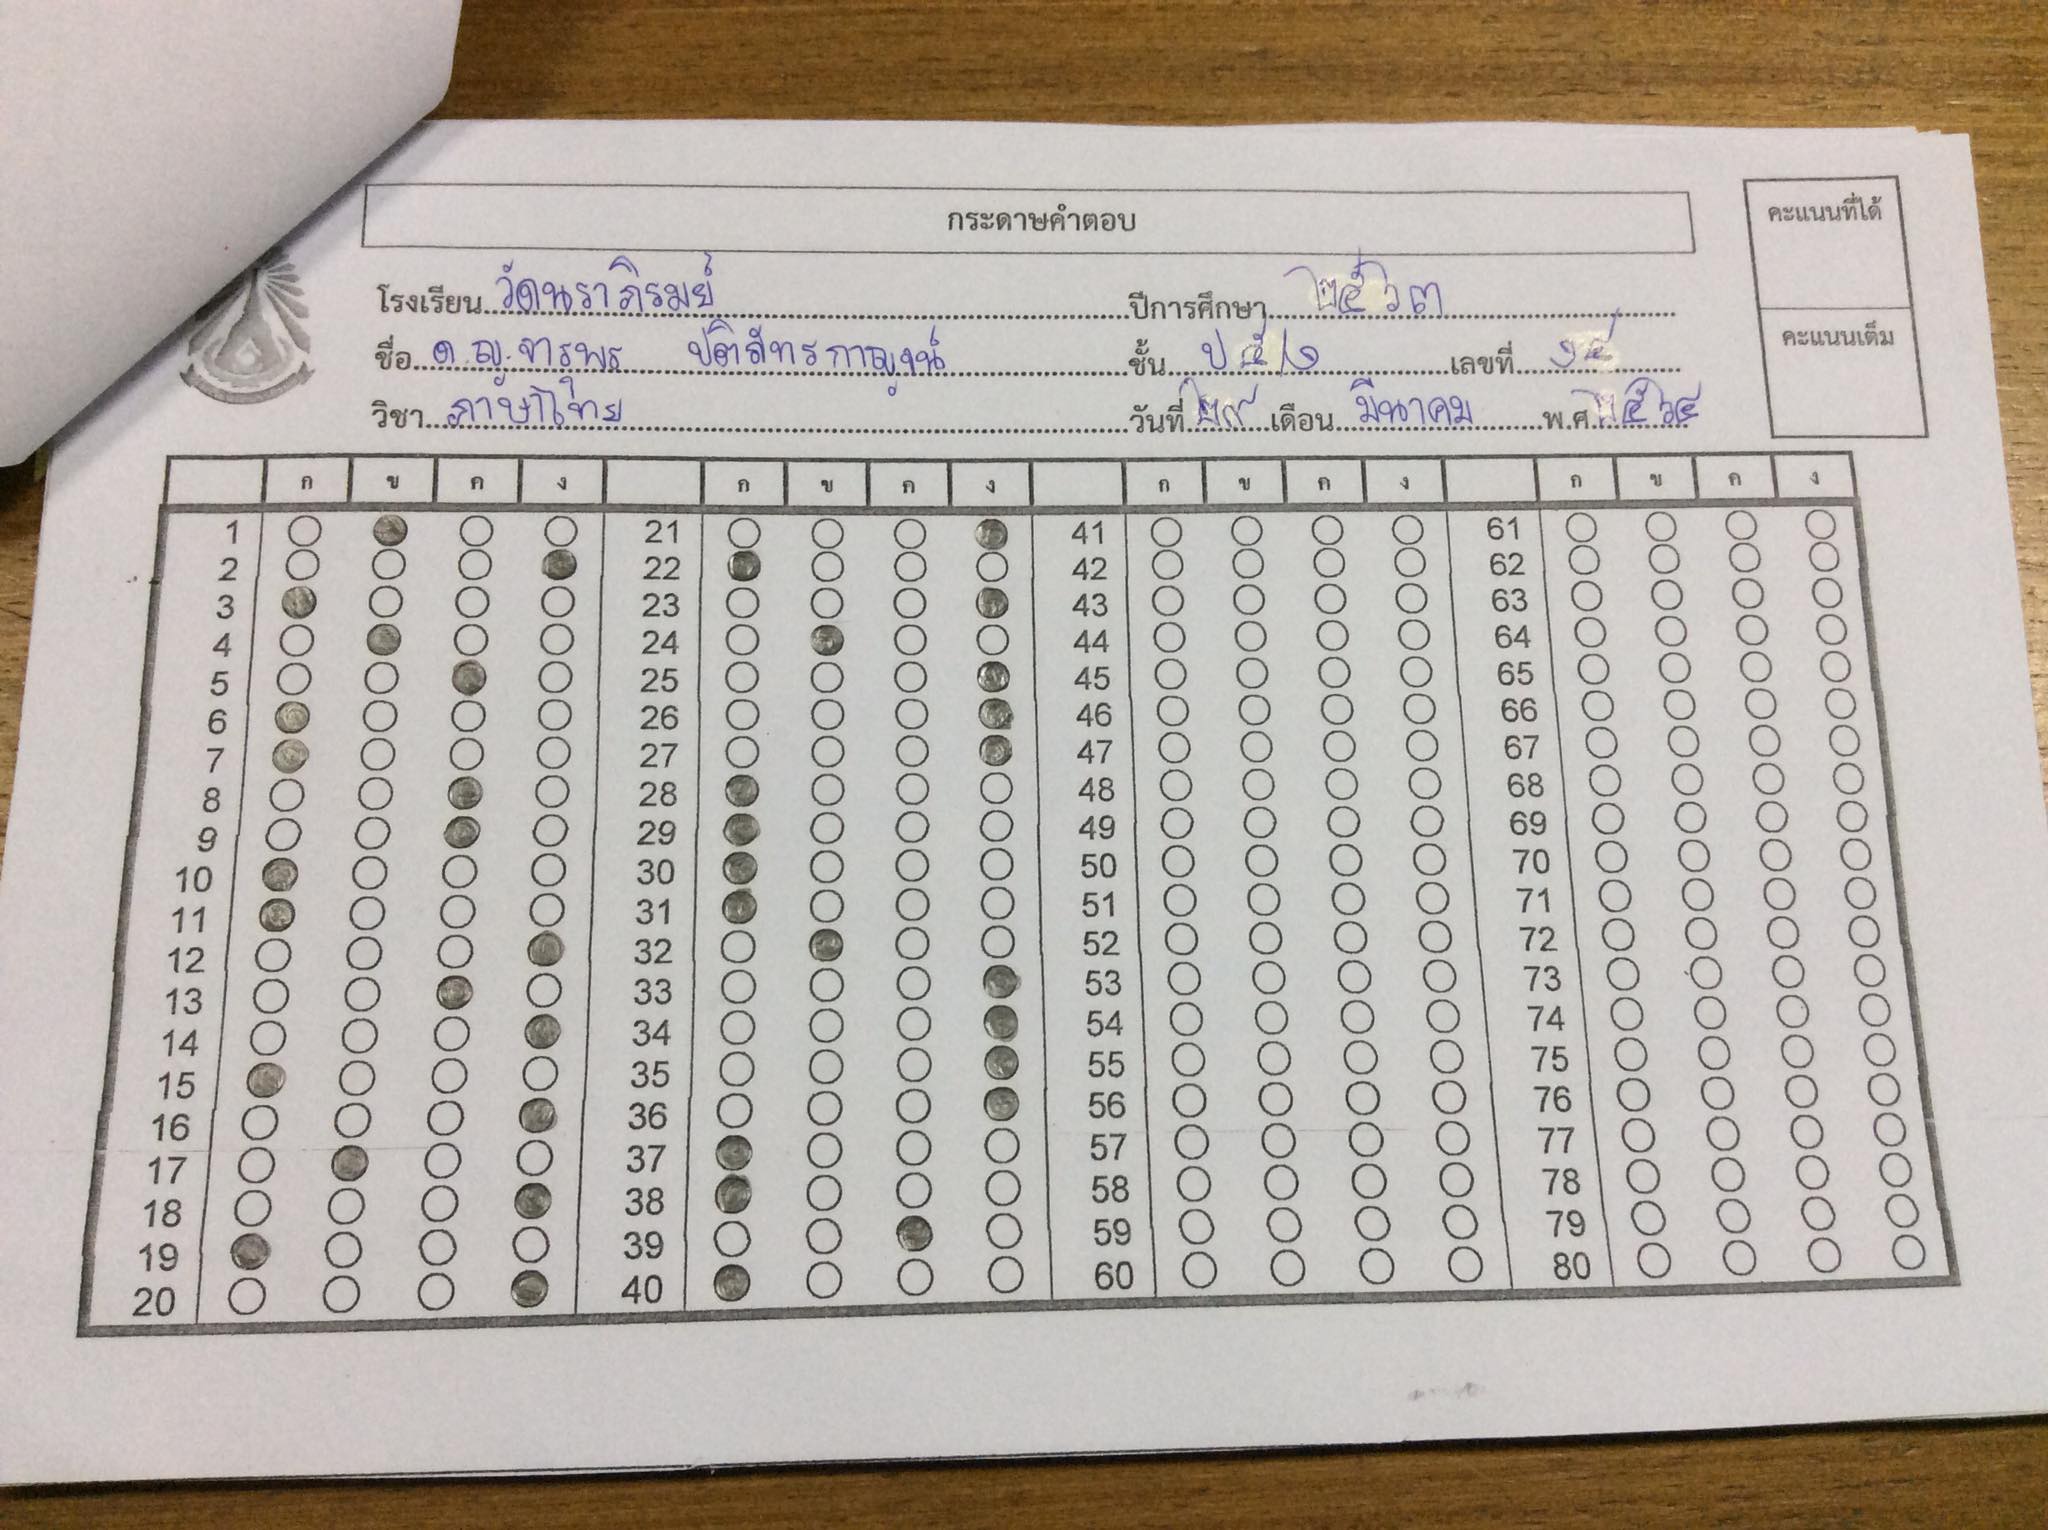 กระดาษคำตอบ
คะแนนที่ได้
โรงเรียน วัดนราภิรมย์ ปีการศึกษา ๒๕๖๓
ชื่อ ด.ญ.จารพร ปติภัทรกาญจน์ ชั้น ป ๕/๑ เลขที่ ๑๕
คะแนนเต็ม
วิชา ภาษาไทย วันที่ ๒๙ เดือน มีนาคม พ.ศ. ๒๕๖๔
ก ข ค ง ก ข ค ง ก ข ค ง ก ข ค ง
1 21 41 61
2 22 42 62
3 23 43 63
4 24 44 64
5 25 45 65
6 26 46 66
7 27 47 67
8 28 48 68
9 29 49 69
10 30 50 70
11 31 51 71
12 32 52 72
13 33 53 73
14 34 54 74
15 35 55 75
16 36 56 76
17 37 57 77
18 38 58 78
19 39 59 79
20 40 60 80